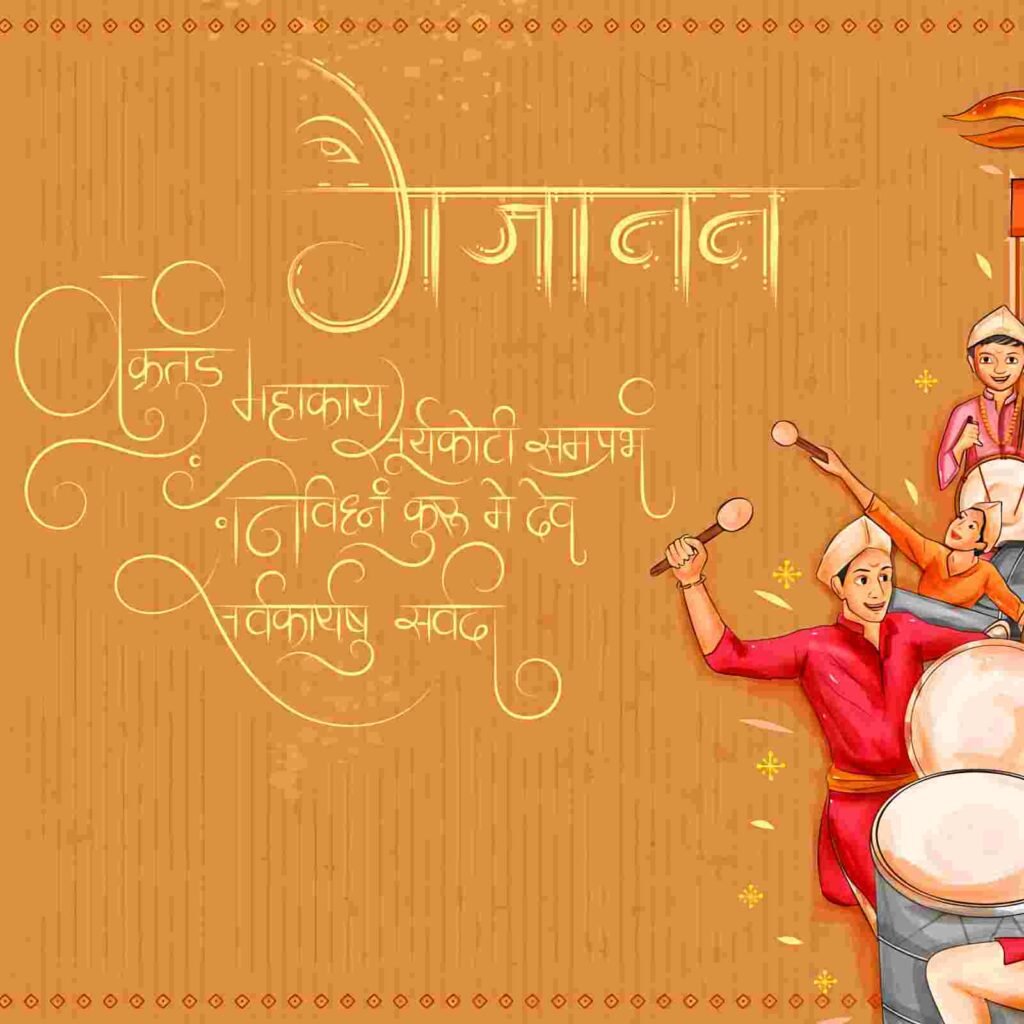 गजानन
वक्रतुंड महाकाय सूर्यकोटी समप्रभं
निर्विघ्नं कुरू मे देव
सर्वकार्येषु सर्वदा